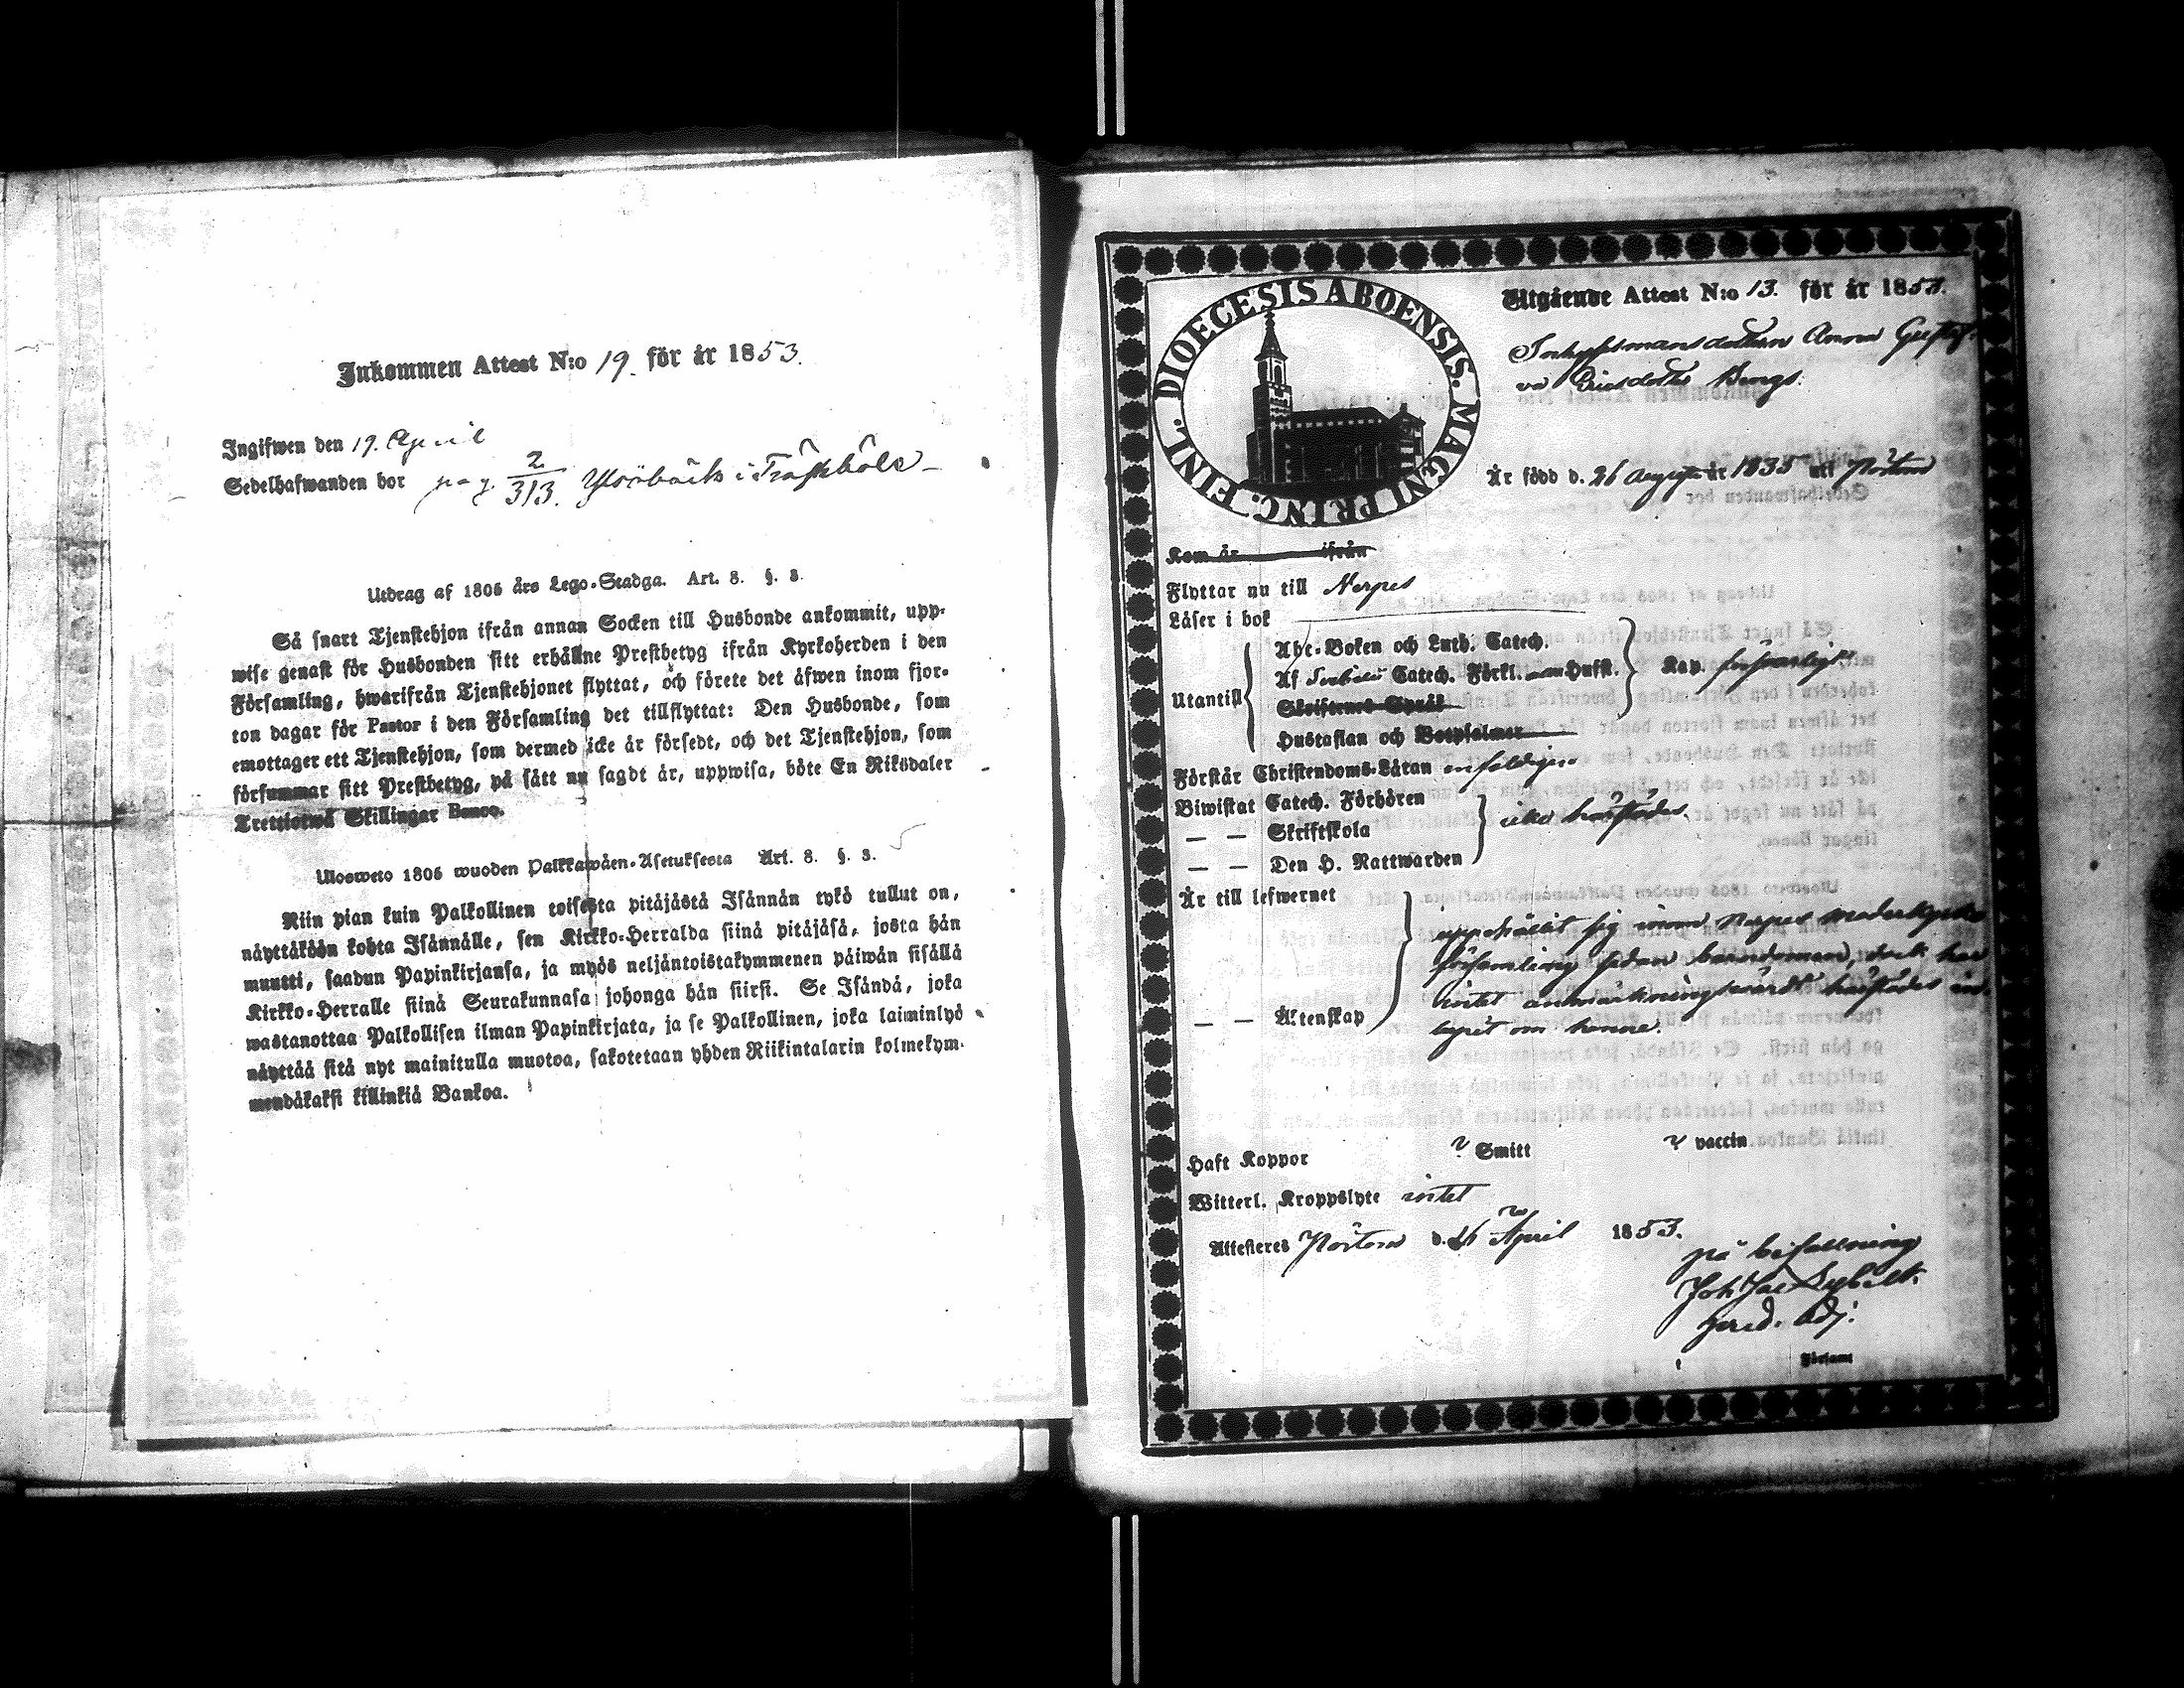 Inkommen Attest N:o 19. för år 1853.
Ingifwen den 19. April
Sedelhafwanden bor pag. 2/313. i Träskböle
Utdrag af 1805 års Lego-Stadga. Art. 8. §. 3.
Så snart Tjenstehjon ifrån annan Socken till Husbonde ankommit, upp-
wise genast för Husbonden sitt erhållne Prestbetyg ifrån Kyrkoherden i den
Församling, hwarifrån Tjenstehjonet flyttat, och förete det äfwen inom fjor-
ton dagar för Pastor i den Församling det tillflyttat: Den Husbonde, som
emottager ett Tjenstehjon, som dermed icke är försedt, och det Tjenstehjon, som
försummar sitt Prestbetyg, på sätt nu sagdt är, uppwisa, böte En Riksdaler
Trettiotwå Skillingar Banco.
Ulosweto 1805 wuoden Palkkawäen-Asetuksesta Art. 8. §. 3.
Niin pian kuin Palkollinen toisesta pitäjästä Isännän tykö tullut on,
näyttäköön kohta Isännälle, sen Kirkko-Herralda siinä pitäjäsä, josta hän
muutti, saadun Papinkirjansa, ja myös neljäntoistakymmenen päiwän sisällä
Kirkko-Herralle siinä Seurakunnasa johonga hän siirsi. Se Isändä, joka
wastanottaa Palkollisen ilman Papinkirjata, ja se Palkollinen, joka laiminlyö
näyttää sitä nyt mainitulla muotoa, sakotetaan yhden Riikintalarin kolmekym-
mendäkaksi killinkiä Bankoa.
DIOECESIS ABOENSIS. MAGNI PRINC. FINL.
Utgående Attest N:o 13. för år 1853.
Inhysesmansdottern Anna Gustaf-
va Ericsdotter Bengs.
Är född d. 26 Augusti år 1835 uti Pörtom
Kom år ifrån
Flyttar nu till Nerpes
Läser i bok
Utantill
Abc-Boken och Luth. Catech.
Af Catech. Förkl. Husst.
Skriftenes Språk
Hustaflan och Botpsalmer
Kap. försvarligt
Förstår Christendoms-Läran enfaldigen
Biwistat Catech. Förhören
— — Skriftskola
— — Den H. Nattwarden
icke härstädes.
Är till lefwernet
— — Äktenskap
uppehållit sig inom Nerpes moderkyrko
församling sedan barndomen, dock har
intet anmärkningsvärdt härstädes in-
lupit om henne.
Haft Koppor ? Smitt ? vaccin
Witterl. Kroppslyte intet
Attesteras Pörtom d. 26 April 1853.
på befallning
Joh Jac
Adj.
Församl